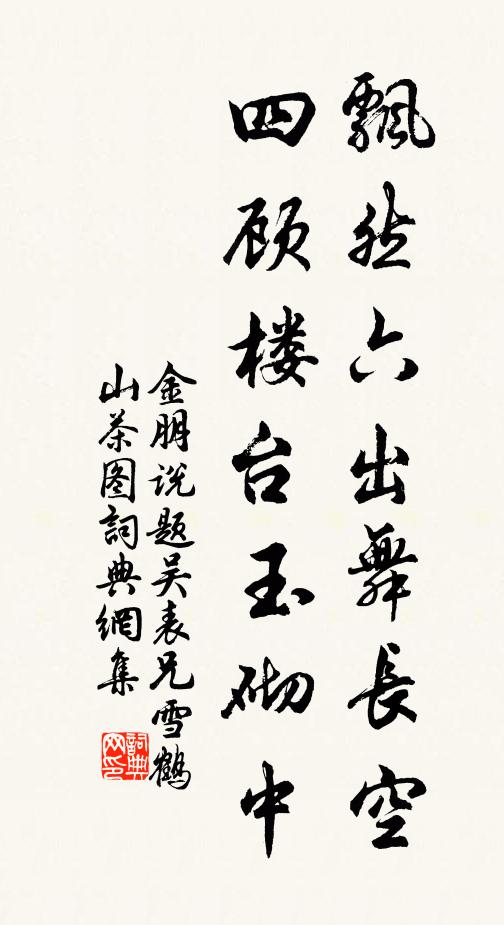 飘然六出舞長空
四顾楼台玉砌中
金朋说题吴表兄雪鹤
山茶图詞典網集
詞典
网印